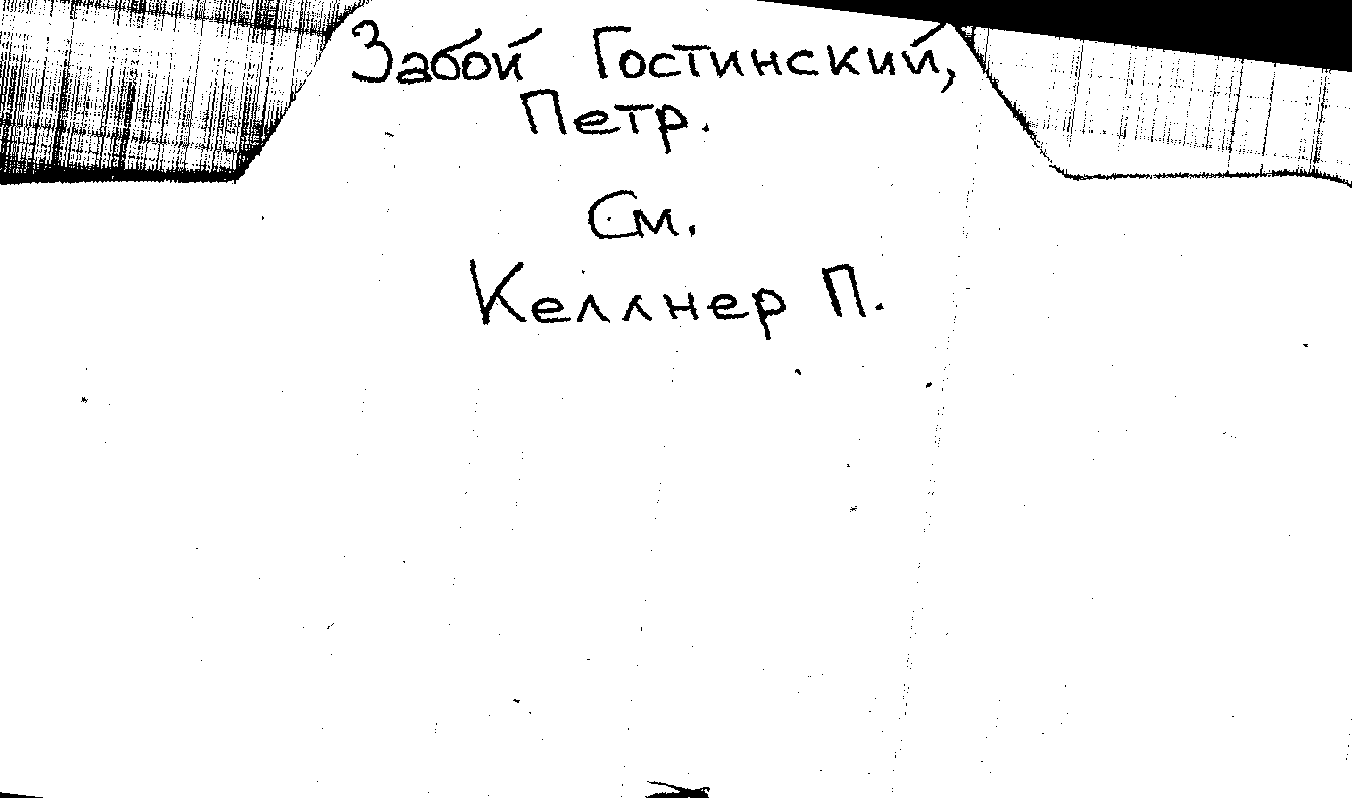 Забой Гостинский,
Петр.
См.
Келлнер П.